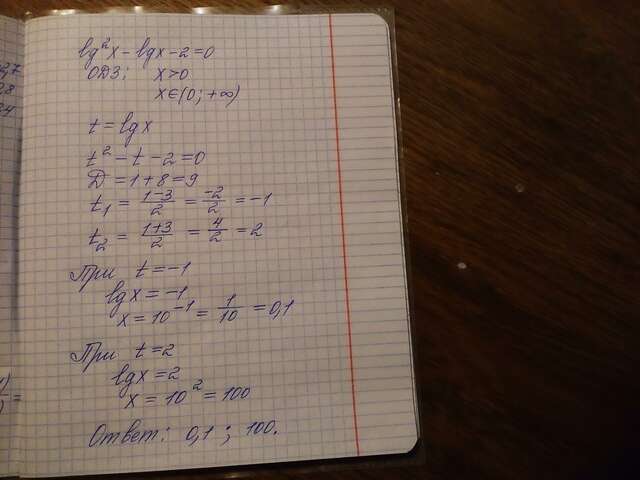 lg²x - lgx - 2 = 0
ОДЗ: x>0
x∈(0; +∞)
t = lgx
t² - t - 2 = 0
D = 1 + 8 = 9
t₁ = (1-3)/2 = -2/2 = -1
t₂ = (1+3)/2 = 4/2 = 2
При t = -1
lgx = -1
x = 10⁻¹ = 1/10 = 0,1
При t = 2
lgx = 2
x = 10² = 100
Ответ: 0,1 ; 100.